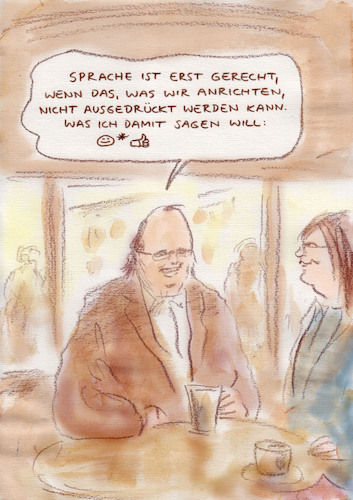 SPRACHE IST ERST GERECHT,
WENN DAS, WAS WIR ANRICHTEN,
NICHT AUSGEDRÜCKT WERDEN KANN.
WAS ICH DAMIT SAGEN WILL:
☺*👍